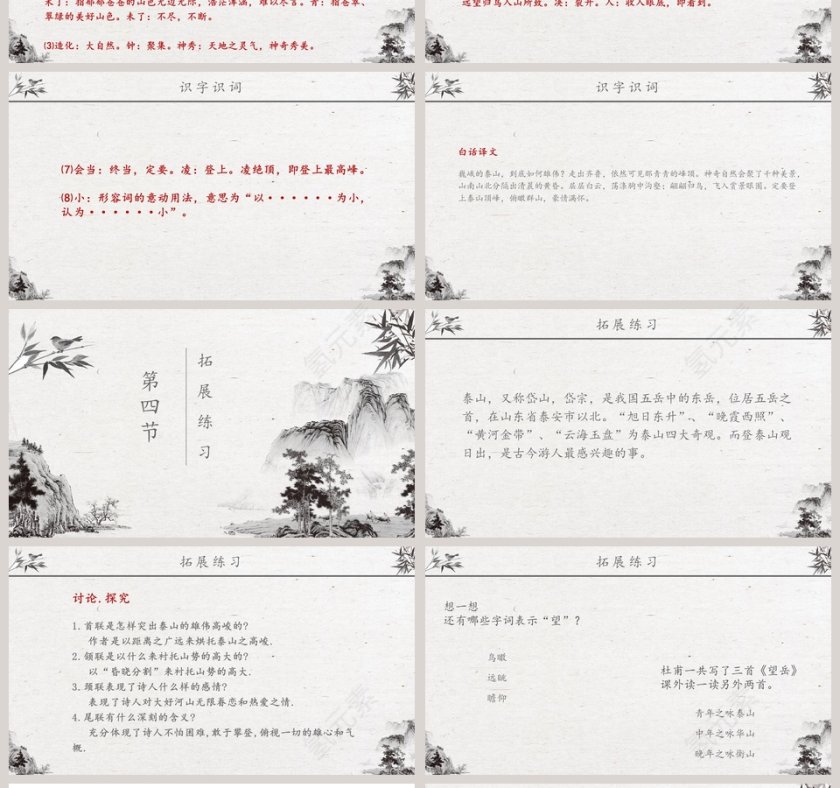 未了：指郁郁苍苍的山色无边无际，浩茫浑涵，难以尽言。青：指苍翠、
翠绿的美好山色。未了：不尽，不断。
⑶造化：大自然。钟：聚集。神秀：天地之灵气，神奇秀美。
远望归鸟入山所致。决：裂开。入：收入眼底，即看到。
识字识词
⑺会当：终当，定要。凌：登上。凌绝顶，即登上最高峰。
⑻小：形容词的意动用法，意思为“以······为小，
认为······小”。
识字识词
白话译文
巍峨的泰山，到底如何雄伟？走出齐鲁，依然可见那青青的峰顶。神奇自然会聚了千种美景，
山南山北分隔出清晨的黄昏。层层白云，荡涤胸中沟壑；翩翩归鸟，飞入赏景眼圈。定要登
上泰山顶峰，俯瞰群山，豪情满怀。
第四节
拓展练习
氢元素
拓展练习
泰山，又称岱山，岱宗，是我国五岳中的东岳，位居五岳之
首，在山东省泰安市以北。“旭日东升”、“晚霞西照”、
“黄河金带”、“云海玉盘”为泰山四大奇观。而登泰山观
日出，是古今游人最感兴趣的事。
氢元素
拓展练习
讨论.探究
1.首联是怎样突出泰山的雄伟高峻的?
作者是以距离之广远来烘托泰山之高峻.
2.颔联是以什么来衬托山势的高大的?
以“昏晓分割”来衬托山势的高大.
3.颈联表现了诗人什么样的感情?
表现了诗人对大好河山无限眷恋和热爱之情.
4.尾联有什么深刻的含义?
充分体现了诗人不怕困难,敢于攀登,俯视一切的雄心和气
概.
氢元素
拓展练习
想一想
还有哪些字词表示“望”？
鸟瞰
远眺
瞻仰
杜甫一共写了三首《望岳》
课外读一读另外两首。
青年之咏泰山
中年之咏华山
晚年之咏衡山
氢元素